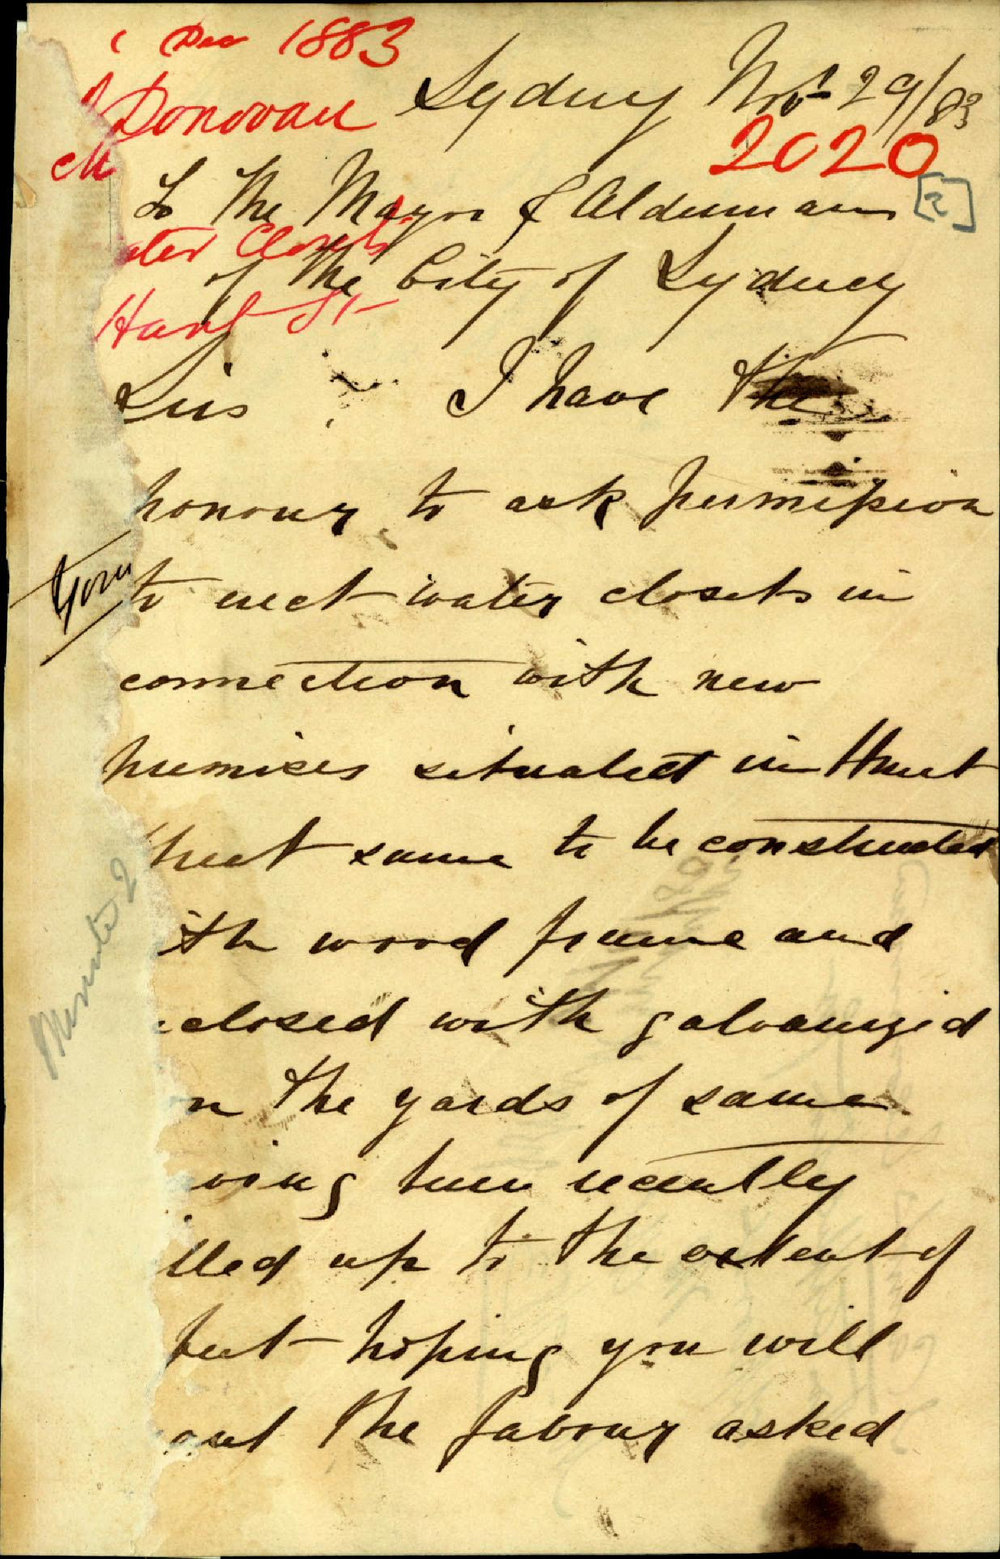 1 Dec 1883
Donovan
Sydney Novr 29/83
2020
To The Mayor & Aldermans
[2]
ater Closets
of The City of Sydney
Hunt St
Sirs I have the
honour to ask permission
Torn
to erect water closets in
connection with new
premises situated in Hunt
treet same to be constructed
ith wood frame and
closed with galvanized
n the yards of same
ving been recently
lled up to the extent of
feet hoping you will
ant the favour asked
Minute 2